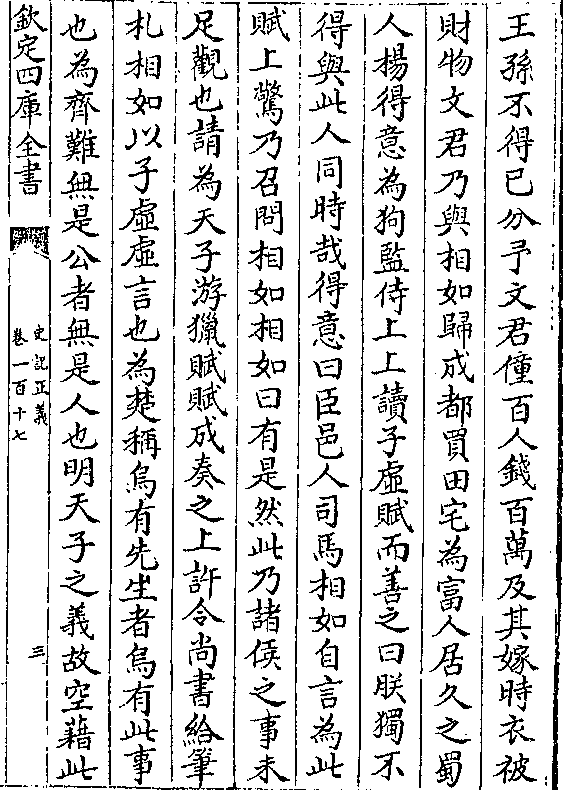 王孫不得已分予文君僮百人錢百萬及其嫁時衣被
財物文君乃與相如歸成都買田宅為富人居久之蜀
人楊得意為狗監侍上上讀子虛賦而善之曰朕獨不
得與此人同時哉得意曰臣邑人司馬相如自言為此
賦上驚乃召問相如相如曰有是然此乃諸侯之事未
足觀也請為天子游獵賦賦成奏之上許令尚書給筆
札相如以子虛虛言也為楚稱烏有先生者烏有此事
也為齊難無是公者無是人也明天子之義故空藉此
欽定四庫全書
史記正義
卷一百十七
三